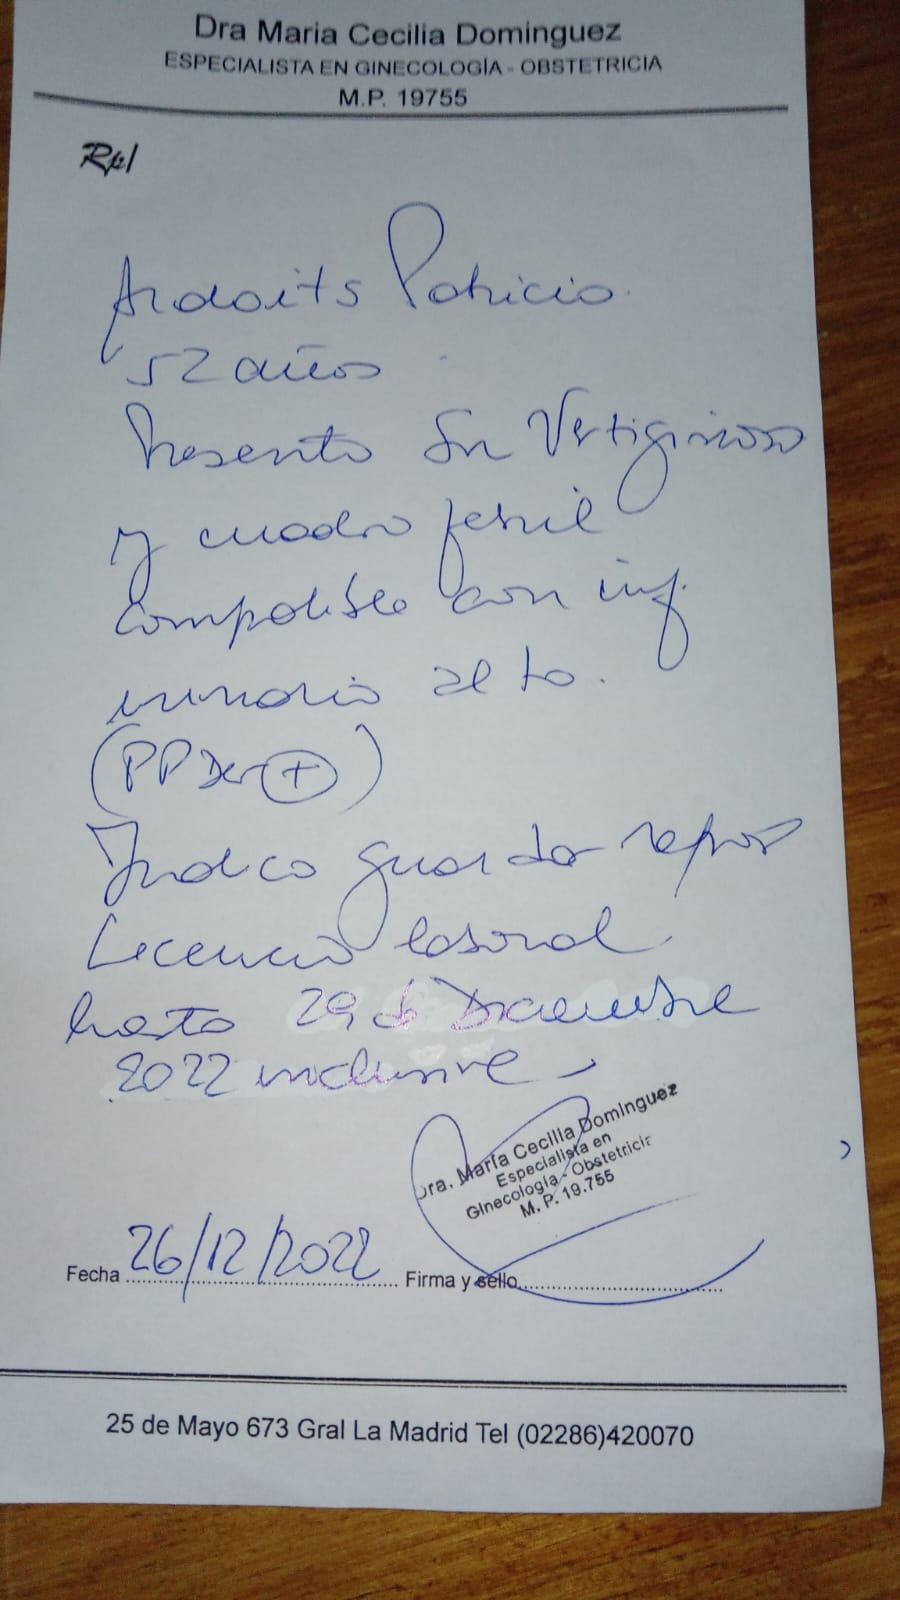 Dra Maria Cecilia Dominguez
ESPECIALISTA EN GINECOLOGÍA - OBSTETRICIA
M.P. 19755
Rp/
Ardoits Patricia
52 años
Presenta Sn Vertiginoso
y cuadro febril
compatible con inf.
urinaria alta.
(PP Der +)
Indico guardar reposo
Licencia laboral
hasta 29 de Diciembre
2022 inclusive
Dra. María Cecilia Dominguez
Especialista en
Ginecología - Obstetricia
M. P. 19.755
Fecha 26/12/2022 Firma y sello
25 de Mayo 673 Gral La Madrid Tel (02286)420070